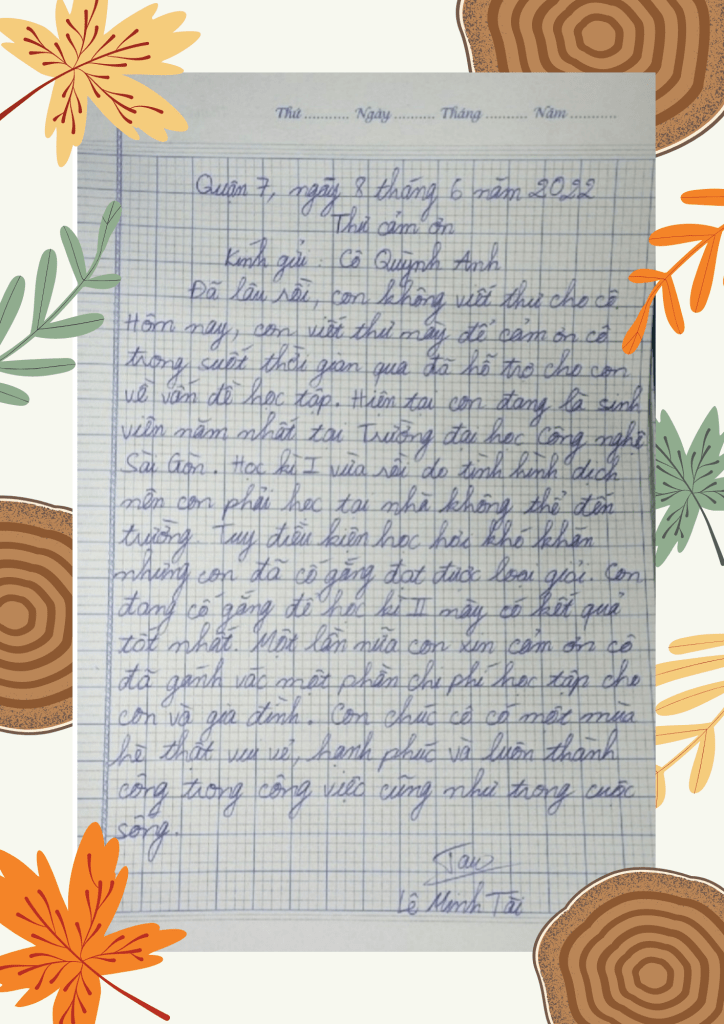 Thứ .......... Ngày ......... Tháng ......... Năm ..........
Quận 7, ngày 8 tháng 6 năm 2022
Thư cảm ơn
Kính gửi : Cô Quỳnh Anh
Đã lâu rồi, con không viết thư cho cô.
Hôm nay, con viết thư này để cảm ơn cô
trong suốt thời gian qua đã hỗ trợ cho con
về vấn đề học tập. Hiện tại con đang là sinh
viên năm nhất tại Trường đại học Công nghệ
Sài Gòn. Học kì I vừa rồi do tình hình dịch
nên con phải học tại nhà không thể đến
trường. Tuy điều kiện học hỏi khó khăn
nhưng con đã cố gắng đạt được loại giỏi. Con
đang cố gắng để học kì II này có kết quả
tốt nhất. Một lần nữa con xin cảm ơn cô
đã gánh vác một phần chi phí học tập cho
con và gia đình. Con chúc cô có một mùa
hè thật vui vẻ, hạnh phúc và luôn thành
công trong công việc cũng như trong cuộc
sống.
Lê Minh Tài